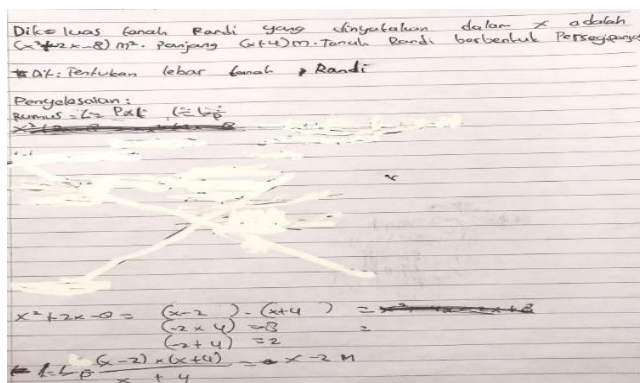 Dik: luas tanah Randi yang dinyatakan dalam x adalah
(x²+2x-8) m². Panjang (x+4)m. Tanah Randi berbentuk Persegipanjang
Dit: Tentukan lebar tanah Randi
Penyelesaian:
Rumus = L = Pxl
x²+2x-8 = (x-2) . (x+4) =
(-2 x 4) = -8 =
(-2+4) = 2
(x-2) x (x+4) = x-2 M
x + 4